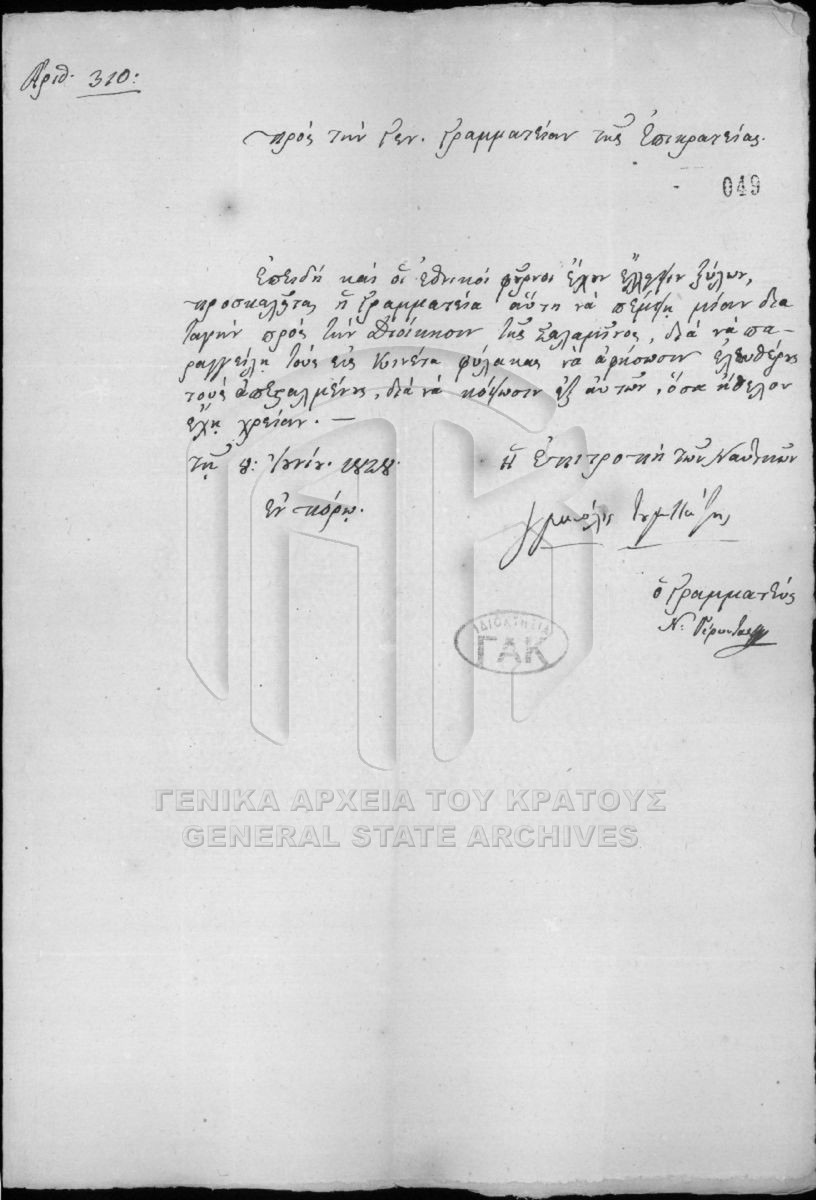 Ἀριθ. 310:
πρὸς τὴν Γεν. Γραμματείαν τῆς Ἐπικρατείας.
049
Ἐπειδὴ καὶ οἱ ἐθνικοὶ φοῦρνοι ἔχουν ἔλλειψιν ξύλων,
προσκαλεῖται ἡ Γραμματεία αὕτη νὰ πέμψῃ μίαν δια
ταγὴν πρὸς τὴν Διοίκησιν τῆς Σαλαμῖνος, διὰ νὰ πα-
ραγγείλῃ τοὺς εἰς Κινέτα φύλακας νὰ ἀφήσωσιν ἐλευθέρους
τοὺς ἀπεσταλμένους, διὰ νὰ κόψωσιν ἐξ αὐτῶν, ὅσα ἤθελον
ἔχῃ χρείαν. —
τῇ 8: Ἰουνίου. 1828.
Ἡ Ἐπιτροπὴ τῶν Ναυτικῶν
ἐν πόρῳ.
Τομπάζης
ὁ Γραμματεὺς
Ν:
ΙΔΙΟΚΤΗΣΙΑ
ΓΑΚ
ΓΕΝΙΚΑ ΑΡΧΕΙΑ ΤΟΥ ΚΡΑΤΟΥΣ
GENERAL STATE ARCHIVES